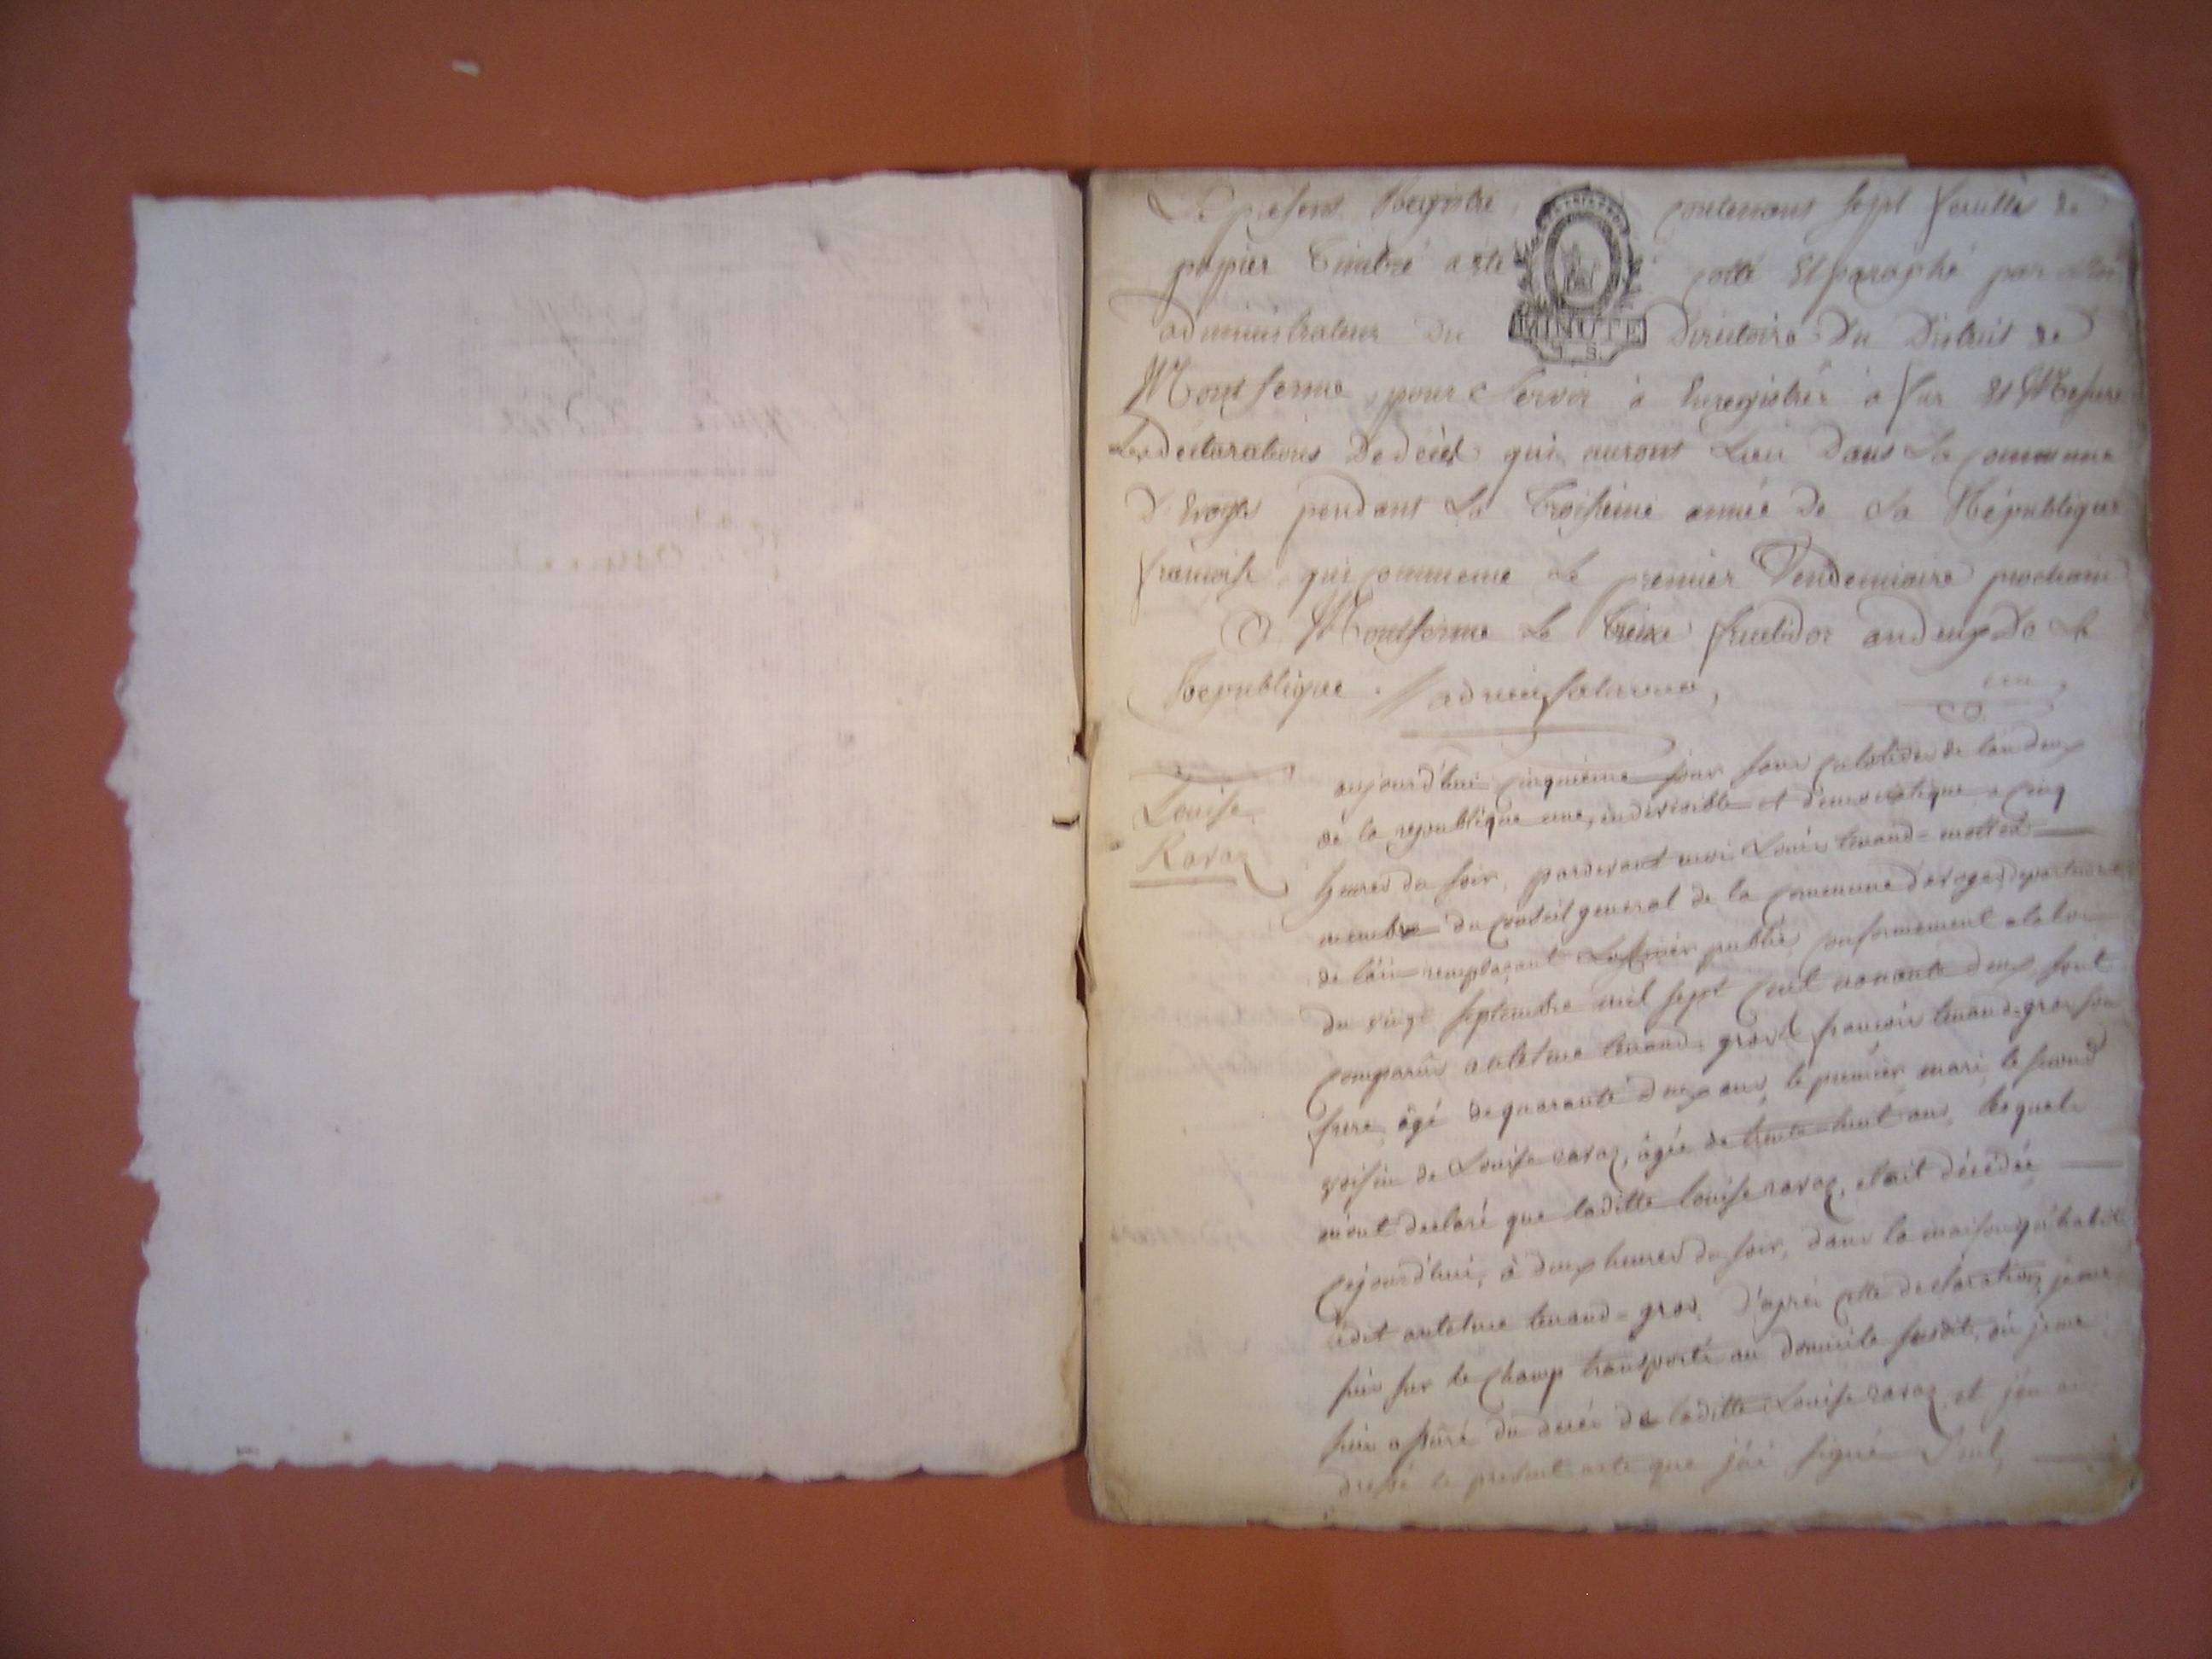 Le présent Registre contenant sept feuilles de
papier timbré a été cotté et paraphé par
MINUTE
administrateur du Directoire du District de
Montferme pour servir à Enregistrer a fur et Mesure
Les déclarations de décès qui auront Lieu dans La commune
d'Evoges pendant La troisième année de La République
françoise qui commence le premier Vendemiaire prochain
A Montferme le treize fructidor an deux de la
République.
Louise
Ravaz
aujourd'hui cinquième jour sans culotides de l'an deux
de la république une, indivisible et démocratique a cinq
heures du soir, pardevant moi Louis tenand-mottet
membre du conseil general de la commune d'evoges departement
de l'ain remplaçant L'officier public, conformement a la loi
du vingt septembre mil sept cent nonante deux, sont
comparus antelme tenand-gros et françois tenand-gros son
frere, âgé de quarante deux ans, le premier mari, le second
voisin de Louise ravaz, âgée de trente-huit ans, lesquels
m'ont declaré que laditte louise ravaz, etait décédée
cejourd'hui, à deux heures du soir, dans la maison qu'habite
ledit antelme tenand-gros, d'après cette declaration, je me
suis sur le champ transporté au domicile susdit, où je me
suis assuré du decès de laditte Louise ravaz, et j'en ai
dressé le present acte que j'ai signé seul,